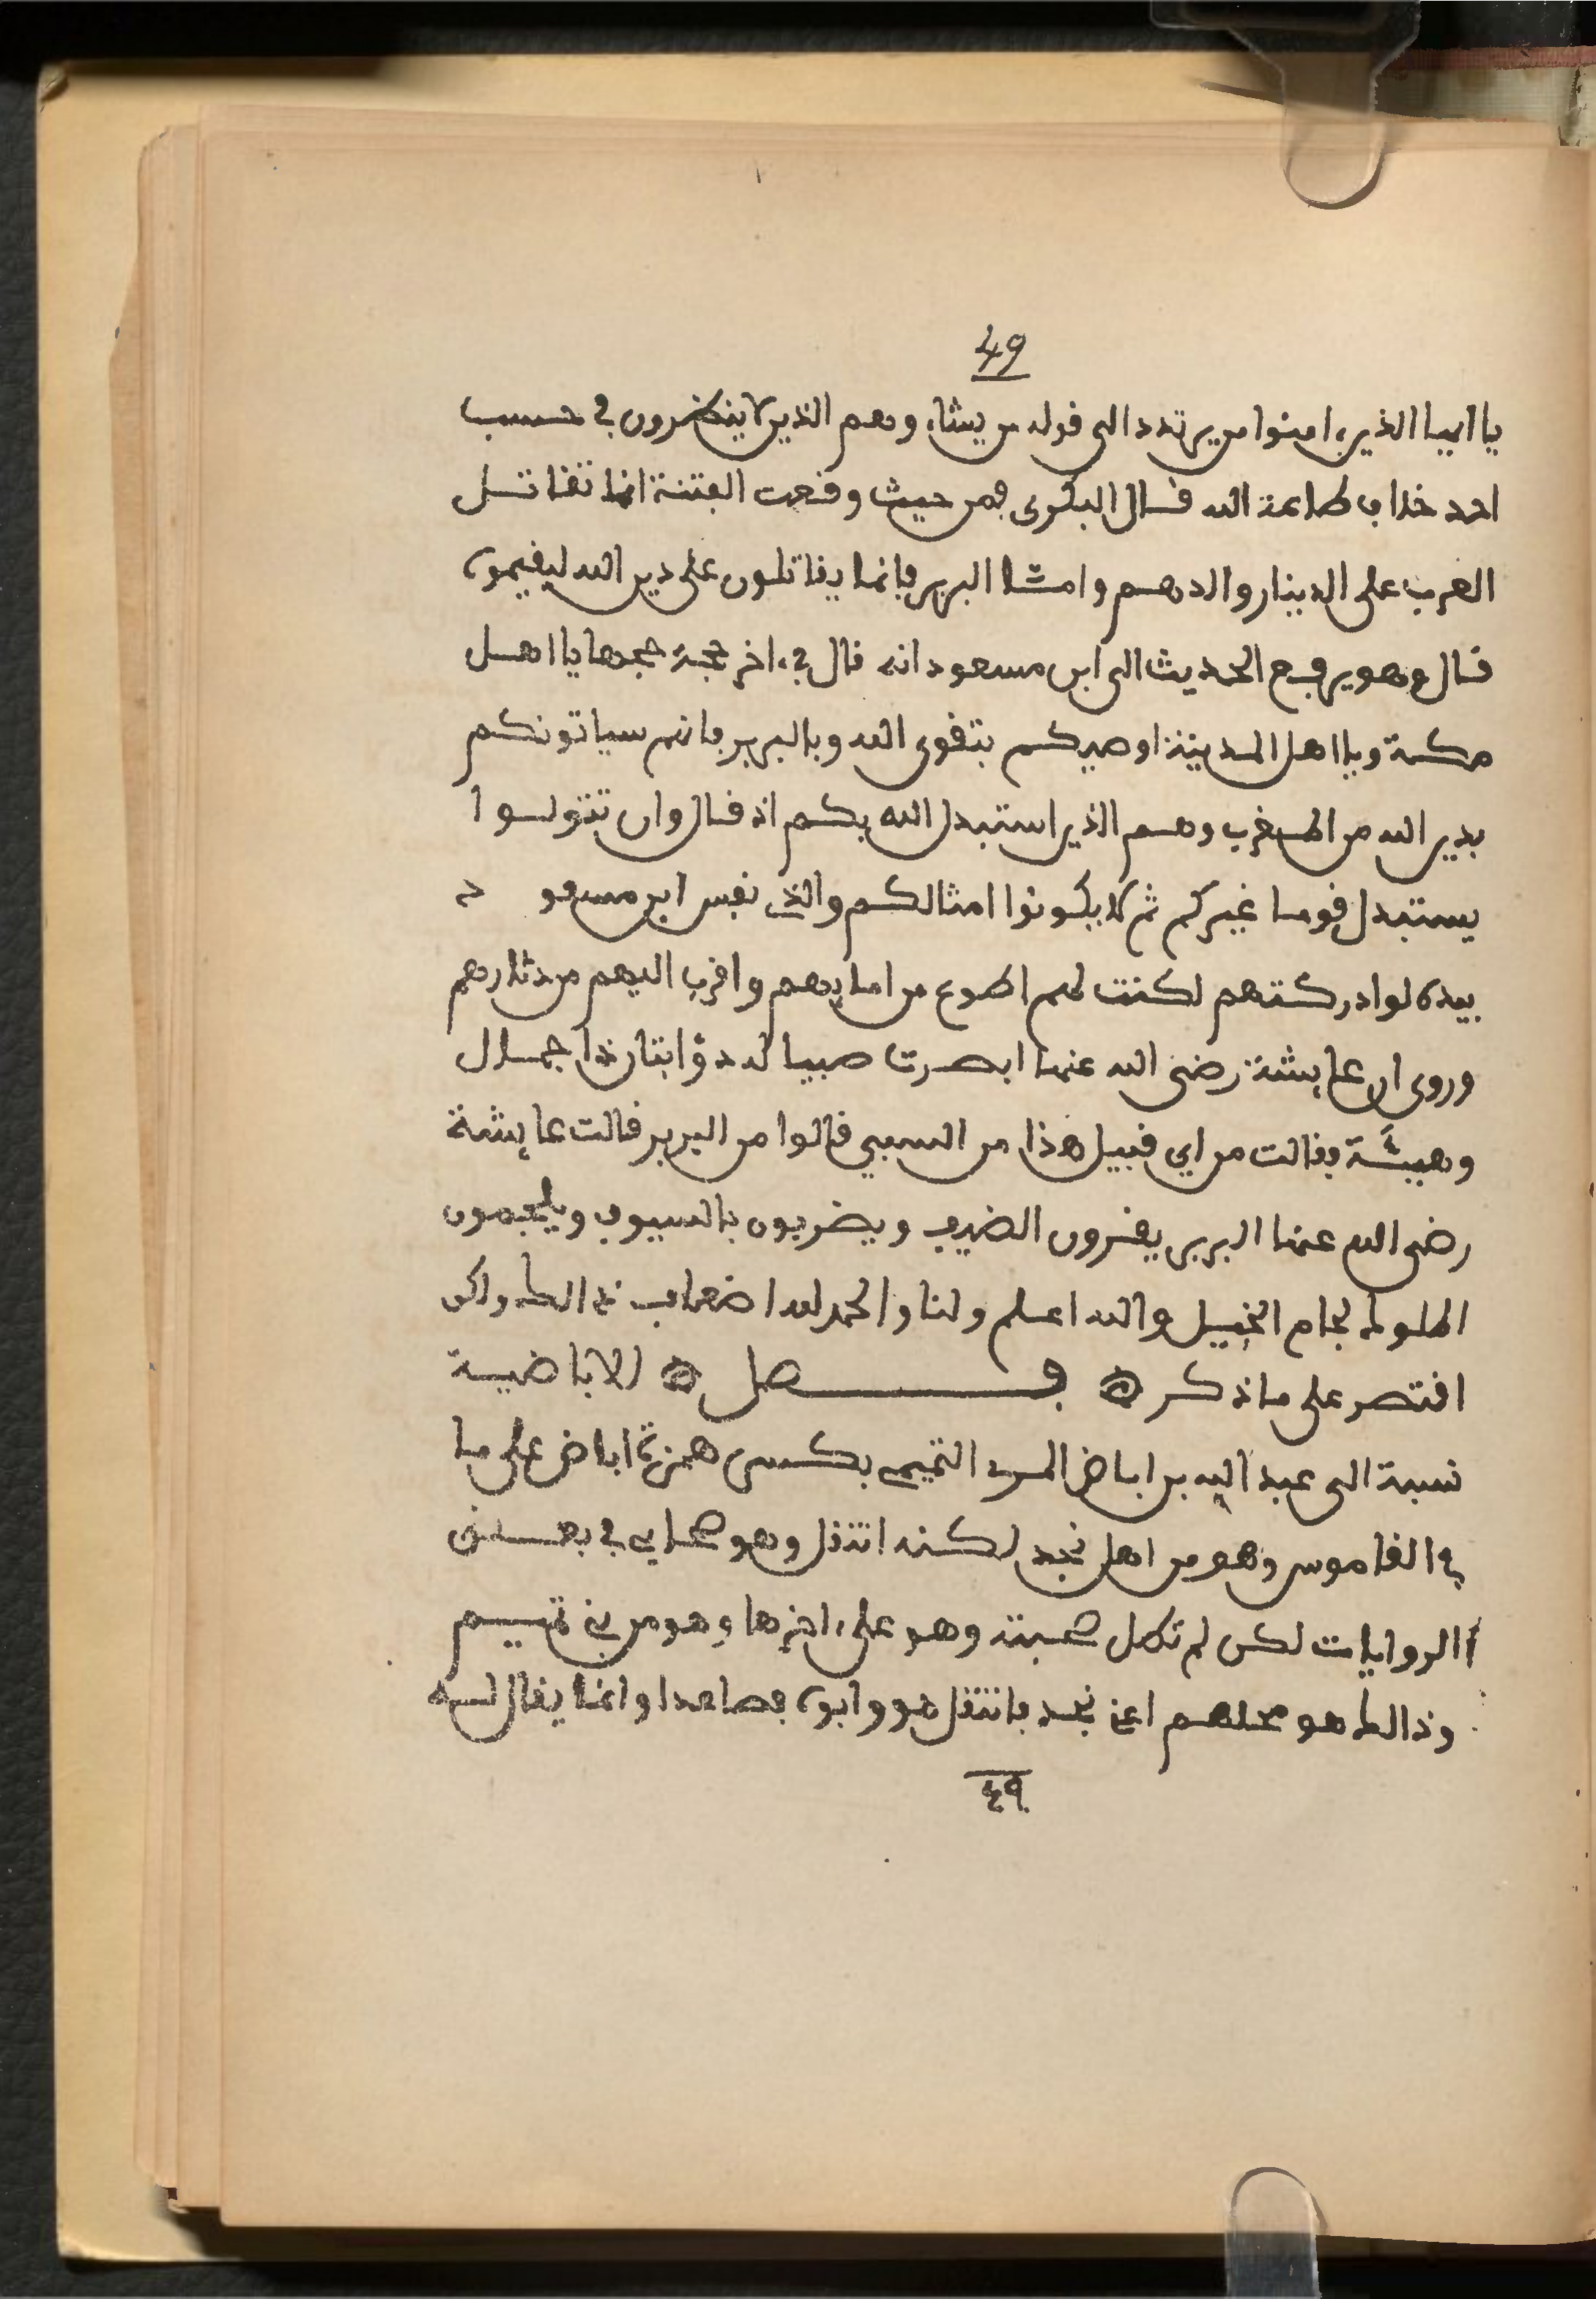 49
يا ايها الذين ءامنوا من يرتدد الى قوله من يشاء وهم الذين لا ينظرون في حسب
احد خلاف طاعة الله قال البكري فمن حيث وقعت الفتنة انما تقاتل
العرب على الدينار والدرهم وامشا البربر فانما يقاتلون على دين الله ليقيموه
قال وهو يرفع الحديث الى ابن مسعود انه قال في ءاخر حجة حجها يا اهل
مكة ويا اهل المدينة اوصيكم بتقوى الله وبالبربر فانهم سياتونكم
بدين الله من المغرب وهم الذين استبدل الله بكم اذ قال وان تتولوا
يستبدل قوما غيركم ثم لا يكونوا امثالكم والذي نفس ابن مسعود
بيده لو ادركتهم لكنت لهم اطوع من امايهم واقرب اليهم من دثارهم
وروى ان عايشة رضي الله عنها ابصرت صبيا له ذؤابتان ذا جمال
وهيئة فقالت من اي قبيل هذا من السبي قالوا من البربر قالت عايشة
رضي الله عنها البربر يقرون الضيف ويضربون بالسيوف ويلجمون
الملوك لجام الخيل والله اعلم ولنا والحمد لله اضعاف ذالك ولكن
اقتصر على ما ذكر ه فصل ه الاباضية
نسبة الى عبد الله بن اباض المري التميمي بكسر همزة اباض على ما
في القاموس وهو من اهل نجد لكنه انتقل وهو صحابي في بعض
الروايات لكن لم تكمل صحبته وهو على ءاخرها وهو من بني تميم
وذالك هو محلهم اعني نجد فانتقل هو وابوه فصاعدا وانما يقال له
٤٩